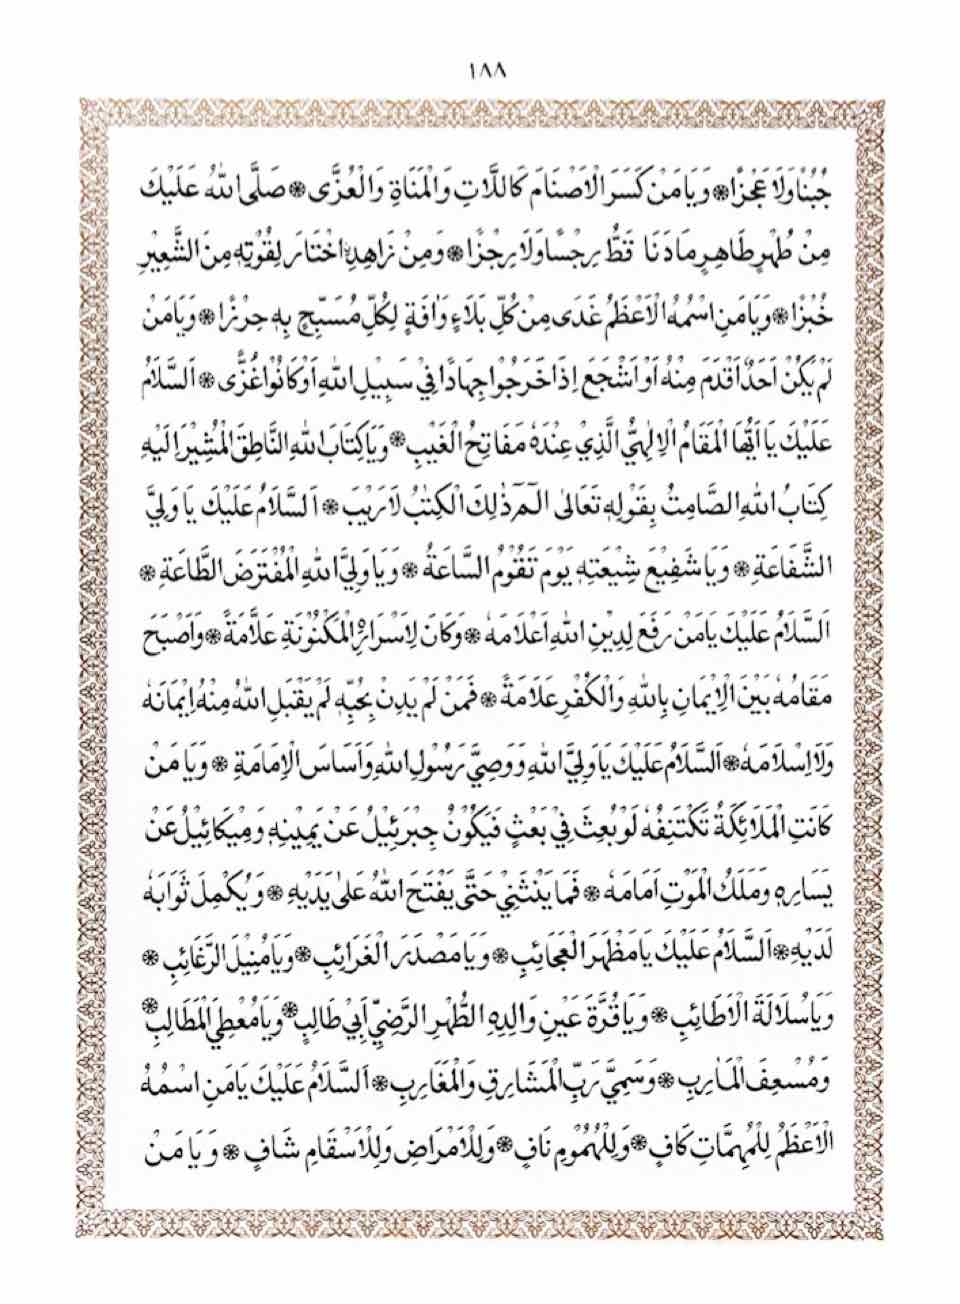 ١٨٨
جُبْنًا وَلَا عَجْزًا ۞ وَيَا مَنْ كَسَرَ الْاَصْنَامَ كَاللَّاتِ وَالْمَنَاةِ وَالْعُزَّى ۞ صَلَّى اللهُ عَلَيْكَ
مِنْ طُهْرٍ طَاهِرٍ مَا دَنَا قَطُّ رِجْسًا وَلَا رِجْزًا ۞ وَمِنْ زَاهِدٍ اخْتَارَ لِقُوْتِهٖ مِنَ الشَّعِيْرِ
خُبْزًا ۞ وَيَا مَنِ اسْمُهُ الْاَعْظَمُ غَدَى مِنْ كُلِّ بَلَاءٍ وَاٰفَةٍ لِكُلِّ مُسَبِّحٍ بِهٖ حِرْزًا ۞ وَيَا مَنْ
لَمْ يَكُنْ اَحَدٌ اَقْدَمَ مِنْهُ اَوْ اَشْجَعَ اِذَا خَرَجُوْا جِهَادًا فِيْ سَبِيْلِ اللهِ اَوْ كَانُوْا غُزًّى ۞ اَلسَّلَامُ
عَلَيْكَ يَا اَيُّهَا الْمَقَامُ الْاِلٰهِيُّ الَّذِيْ عِنْدَهٗ مَفَاتِحُ الْغَيْبِ ۞ وَيَا كِتَابَ اللهِ النَّاطِقَ الْمُشِيْرَ اِلَيْهِ
كِتَابُ اللهِ الصَّامِتُ بِقَوْلِهٖ تَعَالٰى الٓمٓ ذٰلِكَ الْكِتٰبُ لَا رَيْبَ ۞ اَلسَّلَامُ عَلَيْكَ يَا وَلِيَّ
الشَّفَاعَةِ ۞ وَيَا شَفِيْعَ شِيْعَتِهٖ يَوْمَ تَقُوْمُ السَّاعَةُ ۞ وَيَا وَلِيَّ اللهِ الْمُفْتَرَضَ الطَّاعَةِ ۞
اَلسَّلَامُ عَلَيْكَ يَا مَنْ رَفَعَ لِدِيْنِ اللهِ اَعْلَامَهٗ ۞ وَكَانَ لِاَسْرَارِهِ الْمَكْنُوْنَةِ عَلَّامَةً ۞ وَاَصْبَحَ
مَقَامُهٗ بَيْنَ الْاِيْمَانِ بِاللهِ وَالْكُفْرِ عَلَامَةً ۞ فَمَنْ لَمْ يَدِنْ بِحُبِّهٖ لَمْ يَقْبَلِ اللهُ مِنْهُ اِيْمَانَهٗ
وَلَا اِسْلَامَهٗ ۞ اَلسَّلَامُ عَلَيْكَ يَا وَلِيَّ اللهِ وَوَصِيَّ رَسُوْلِ اللهِ وَاَسَاسَ الْاِمَامَةِ ۞ وَيَا مَنْ
كَانَتِ الْمَلَائِكَةُ تَكْتَنِفُهٗ لَوْ بُعِثَ فِيْ بَعْثٍ فَيَكُوْنُ جِبْرَئِيْلُ عَنْ يَمِيْنِهٖ وَمِيْكَائِيْلُ عَنْ
يَسَارِهٖ وَمَلَكُ الْمَوْتِ اَمَامَهٗ ۞ فَمَا يَنْثَنِيْ حَتَّى يَفْتَحَ اللهُ عَلٰى يَدَيْهِ ۞ وَيُكْمِلَ ثَوَابَهٗ
لَدَيْهِ ۞ اَلسَّلَامُ عَلَيْكَ يَا مَظْهَرَ الْعَجَائِبِ ۞ وَيَا مَصْدَرَ الْغَرَائِبِ ۞ وَيَا مُنِيْلَ الرَّغَائِبِ ۞
وَيَا سُلَالَةَ الْاَطَائِبِ ۞ وَيَا قُرَّةَ عَيْنِ وَالِدِهِ الطُّهْرِ الرَّضِيِّ اَبِيْ طَالِبٍ ۞ وَيَا مُعْطِيَ الْمَطَالِبِ ۞
وَمُسْعِفَ الْمَاٰرِبِ ۞ وَسَمِيَّ رَبِّ الْمَشَارِقِ وَالْمَغَارِبِ ۞ اَلسَّلَامُ عَلَيْكَ يَا مَنِ اسْمُهُ
الْاَعْظَمُ لِلْمُهِمَّاتِ كَافٍ ۞ وَلِلْهُمُوْمِ نَافٍ ۞ وَلِلْاَمْرَاضِ وَلِلْاَسْقَامِ شَافٍ ۞ وَيَا مَنْ